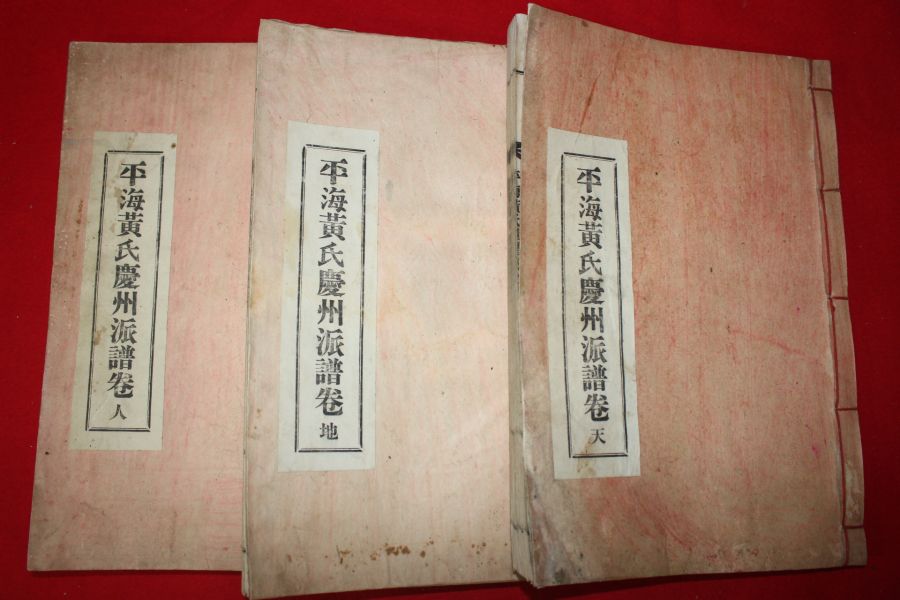 平海黃氏慶州派譜卷天
平海黃氏慶州派譜卷地
平海黃氏慶州派譜卷人